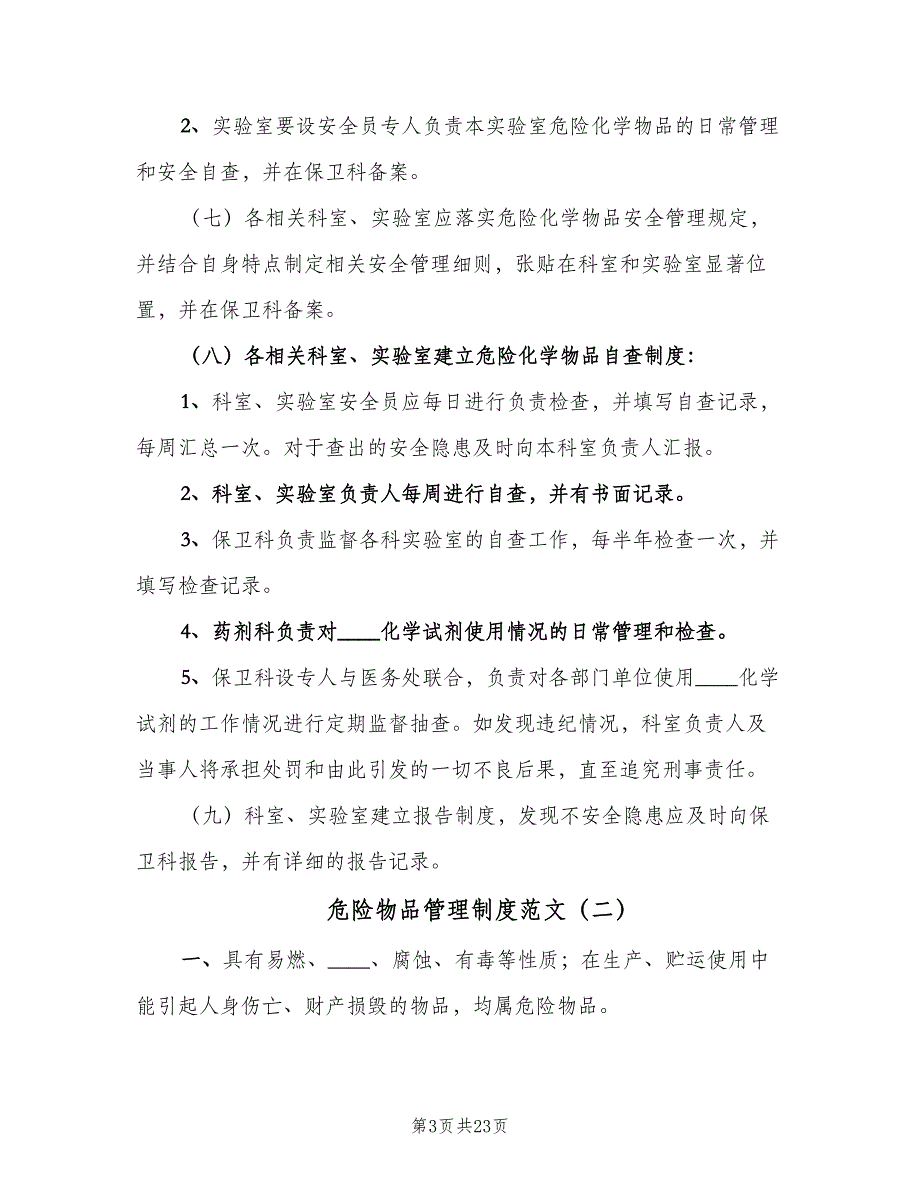 2、实验室要设安全员专人负责本实验室危险化学物品的日常管理
和安全自查，并在保卫科备案。
（七）各相关科室、实验室应落实危险化学物品安全管理规定，
并结合自身特点制定相关安全管理细则，张贴在科室和实验室显著位
置，并在保卫科备案。
（八）各相关科室、实验室建立危险化学物品自查制度：
1、科室、实验室安全员应每日进行负责检查，并填写自查记录，
每周汇总一次。对于查出的安全隐患及时向本科室负责人汇报。
2、科室、实验室负责人每周进行自查，并有书面记录。
3、保卫科负责监督各科实验室的自查工作，每半年检查一次，并
填写检查记录。
4、药剂科负责对____化学试剂使用情况的日常管理和检查。
5、保卫科设专人与医务处联合，负责对各部门单位使用____化学
试剂的工作情况进行定期监督抽查。如发现违纪情况，科室负责人及
当事人将承担处罚和由此引发的一切不良后果，直至追究刑事责任。
（九）科室、实验室建立报告制度，发现不安全隐患应及时向保
卫科报告，并有详细的报告记录。
危险物品管理制度范文（二）
一、具有易燃、____、腐蚀、有毒等性质；在生产、贮运使用中
能引起人身伤亡、财产损毁的物品，均属危险物品。
第3页共23页